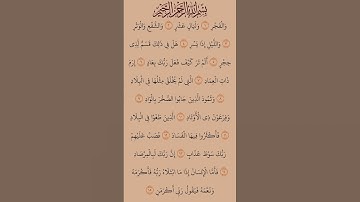 بسم الله الرحمن الرحيم
وَالْفَجْرِ ۝١ وَلَيَالٍ عَشْرٍ ۝٢ وَالشَّفْعِ وَالْوَتْرِ
۝٣ وَاللَّيْلِ إِذَا يَسْرِ ۝٤ هَلْ فِي ذَٰلِكَ قَسَمٌ لِذِي
حِجْرٍ ۝٥ أَلَمْ تَرَ كَيْفَ فَعَلَ رَبُّكَ بِعَادٍ ۝٦ إِرَمَ
ذَاتِ الْعِمَادِ ۝٧ الَّتِي لَمْ يُخْلَقْ مِثْلُهَا فِي الْبِلَادِ
۝٨ وَثَمُودَ الَّذِينَ جَابُوا الصَّخْرَ بِالْوَادِ ۝٩
وَفِرْعَوْنَ ذِي الْأَوْتَادِ ۝١٠ الَّذِينَ طَغَوْا فِي الْبِلَادِ ۝١١
فَأَكْثَرُوا فِيهَا الْفَسَادَ ۝١٢ فَصَبَّ عَلَيْهِمْ
رَبُّكَ سَوْطَ عَذَابٍ ۝١٣ إِنَّ رَبَّكَ لَبِالْمِرْصَادِ ۝١٤
فَأَمَّا الْإِنْسَانُ إِذَا مَا ابْتَلَاهُ رَبُّهُ فَأَكْرَمَهُ
وَنَعَّمَهُ فَيَقُولُ رَبِّي أَكْرَمَنِ ۝١٥